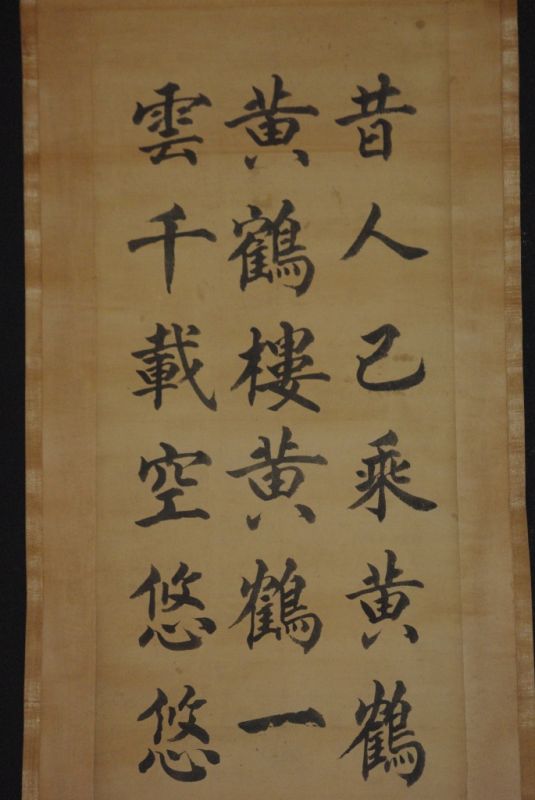 昔人已乘黃鶴
黃鶴樓黃鶴一
雲千載空悠悠